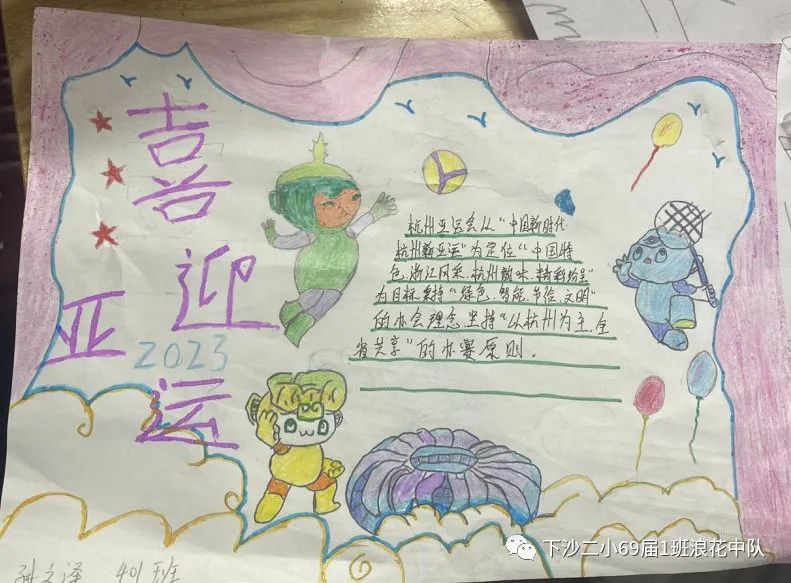 喜
迎
亚
2023
运
杭州亚运会以“中国新时代·
杭州新亚运”为定位“中国特
色.浙江风采.杭州韵味.精彩纷呈”
为目标.秉持“绿色.智能.节俭.文明”
的办会理念.坚持“以杭州为主,全
省共享”的办赛原则.
孙文泽 401班
下沙二小69届1班浪花中队